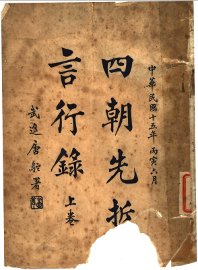 中華民國十五年丙寅六月
四朝先哲
言行錄 上卷
武進唐駝署